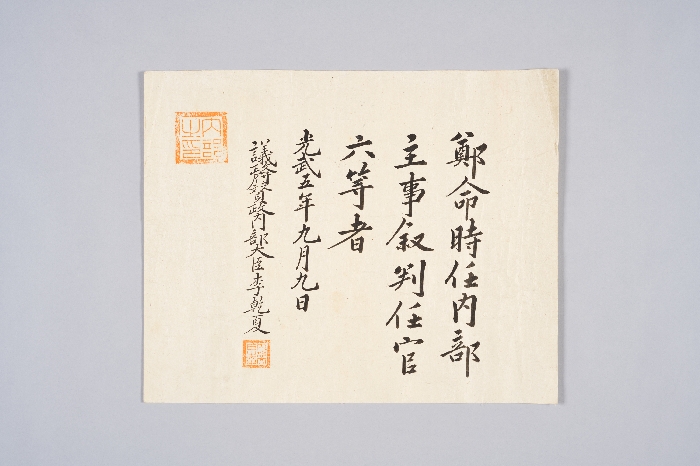 鄭命時任內部
主事敘判任官
六等者
光武五年九月九日
議政府贊政內部大臣李乾夏
內部之印